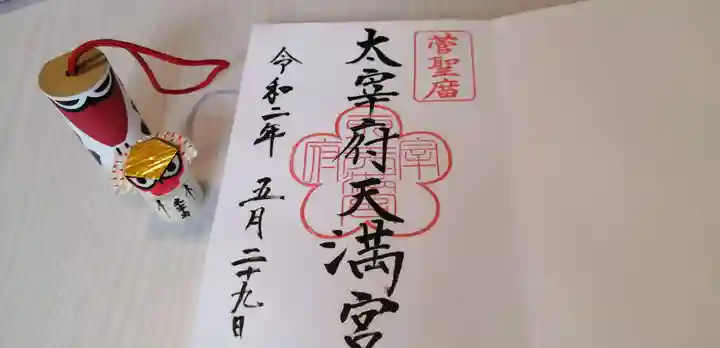 菅聖廟
太宰府天満宮
令和二年 五月二十九日